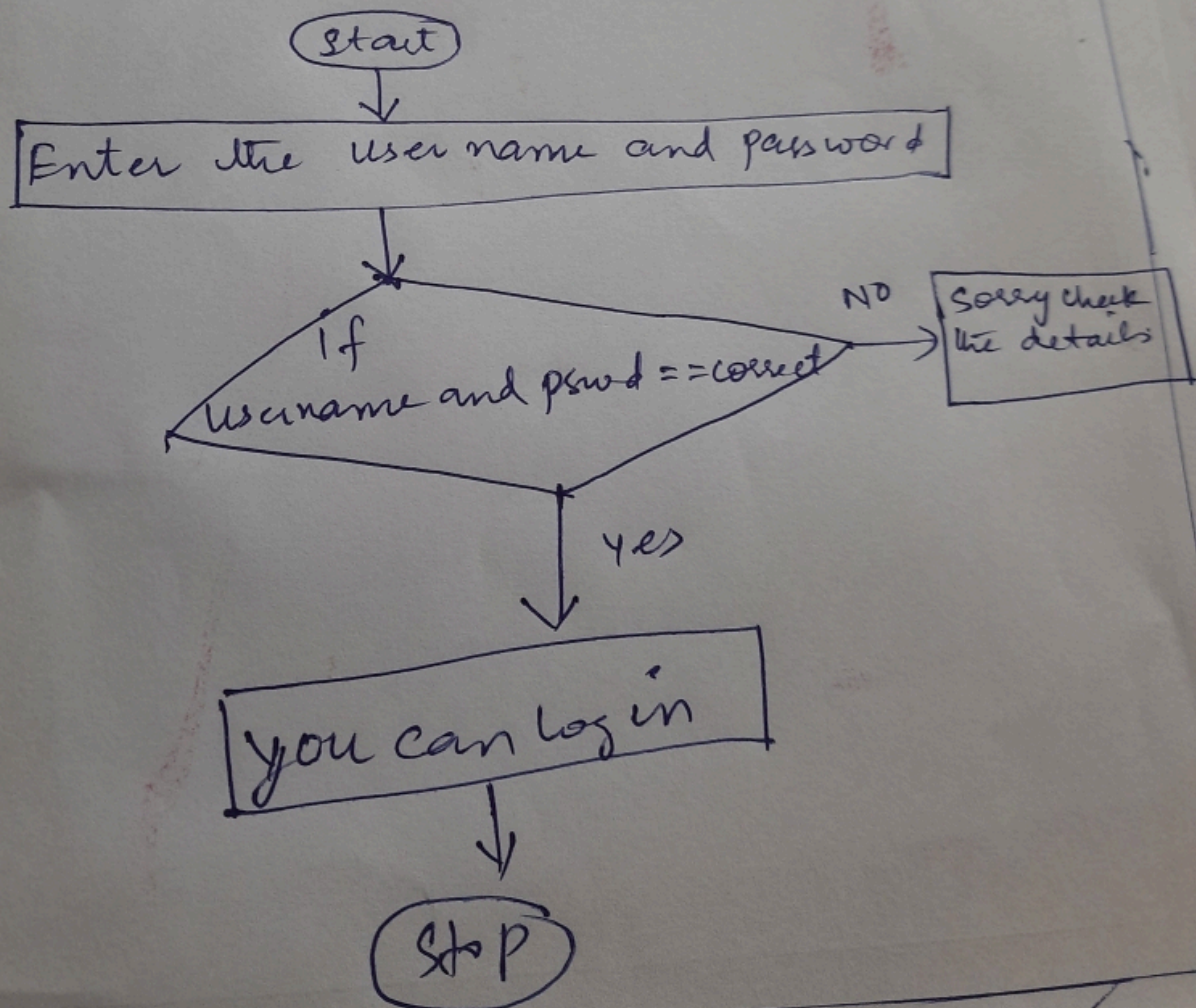 Start
Enter the user name and password
If
username and pswd == correct
NO
Sorry check
the details
yes
you can log in
Stop